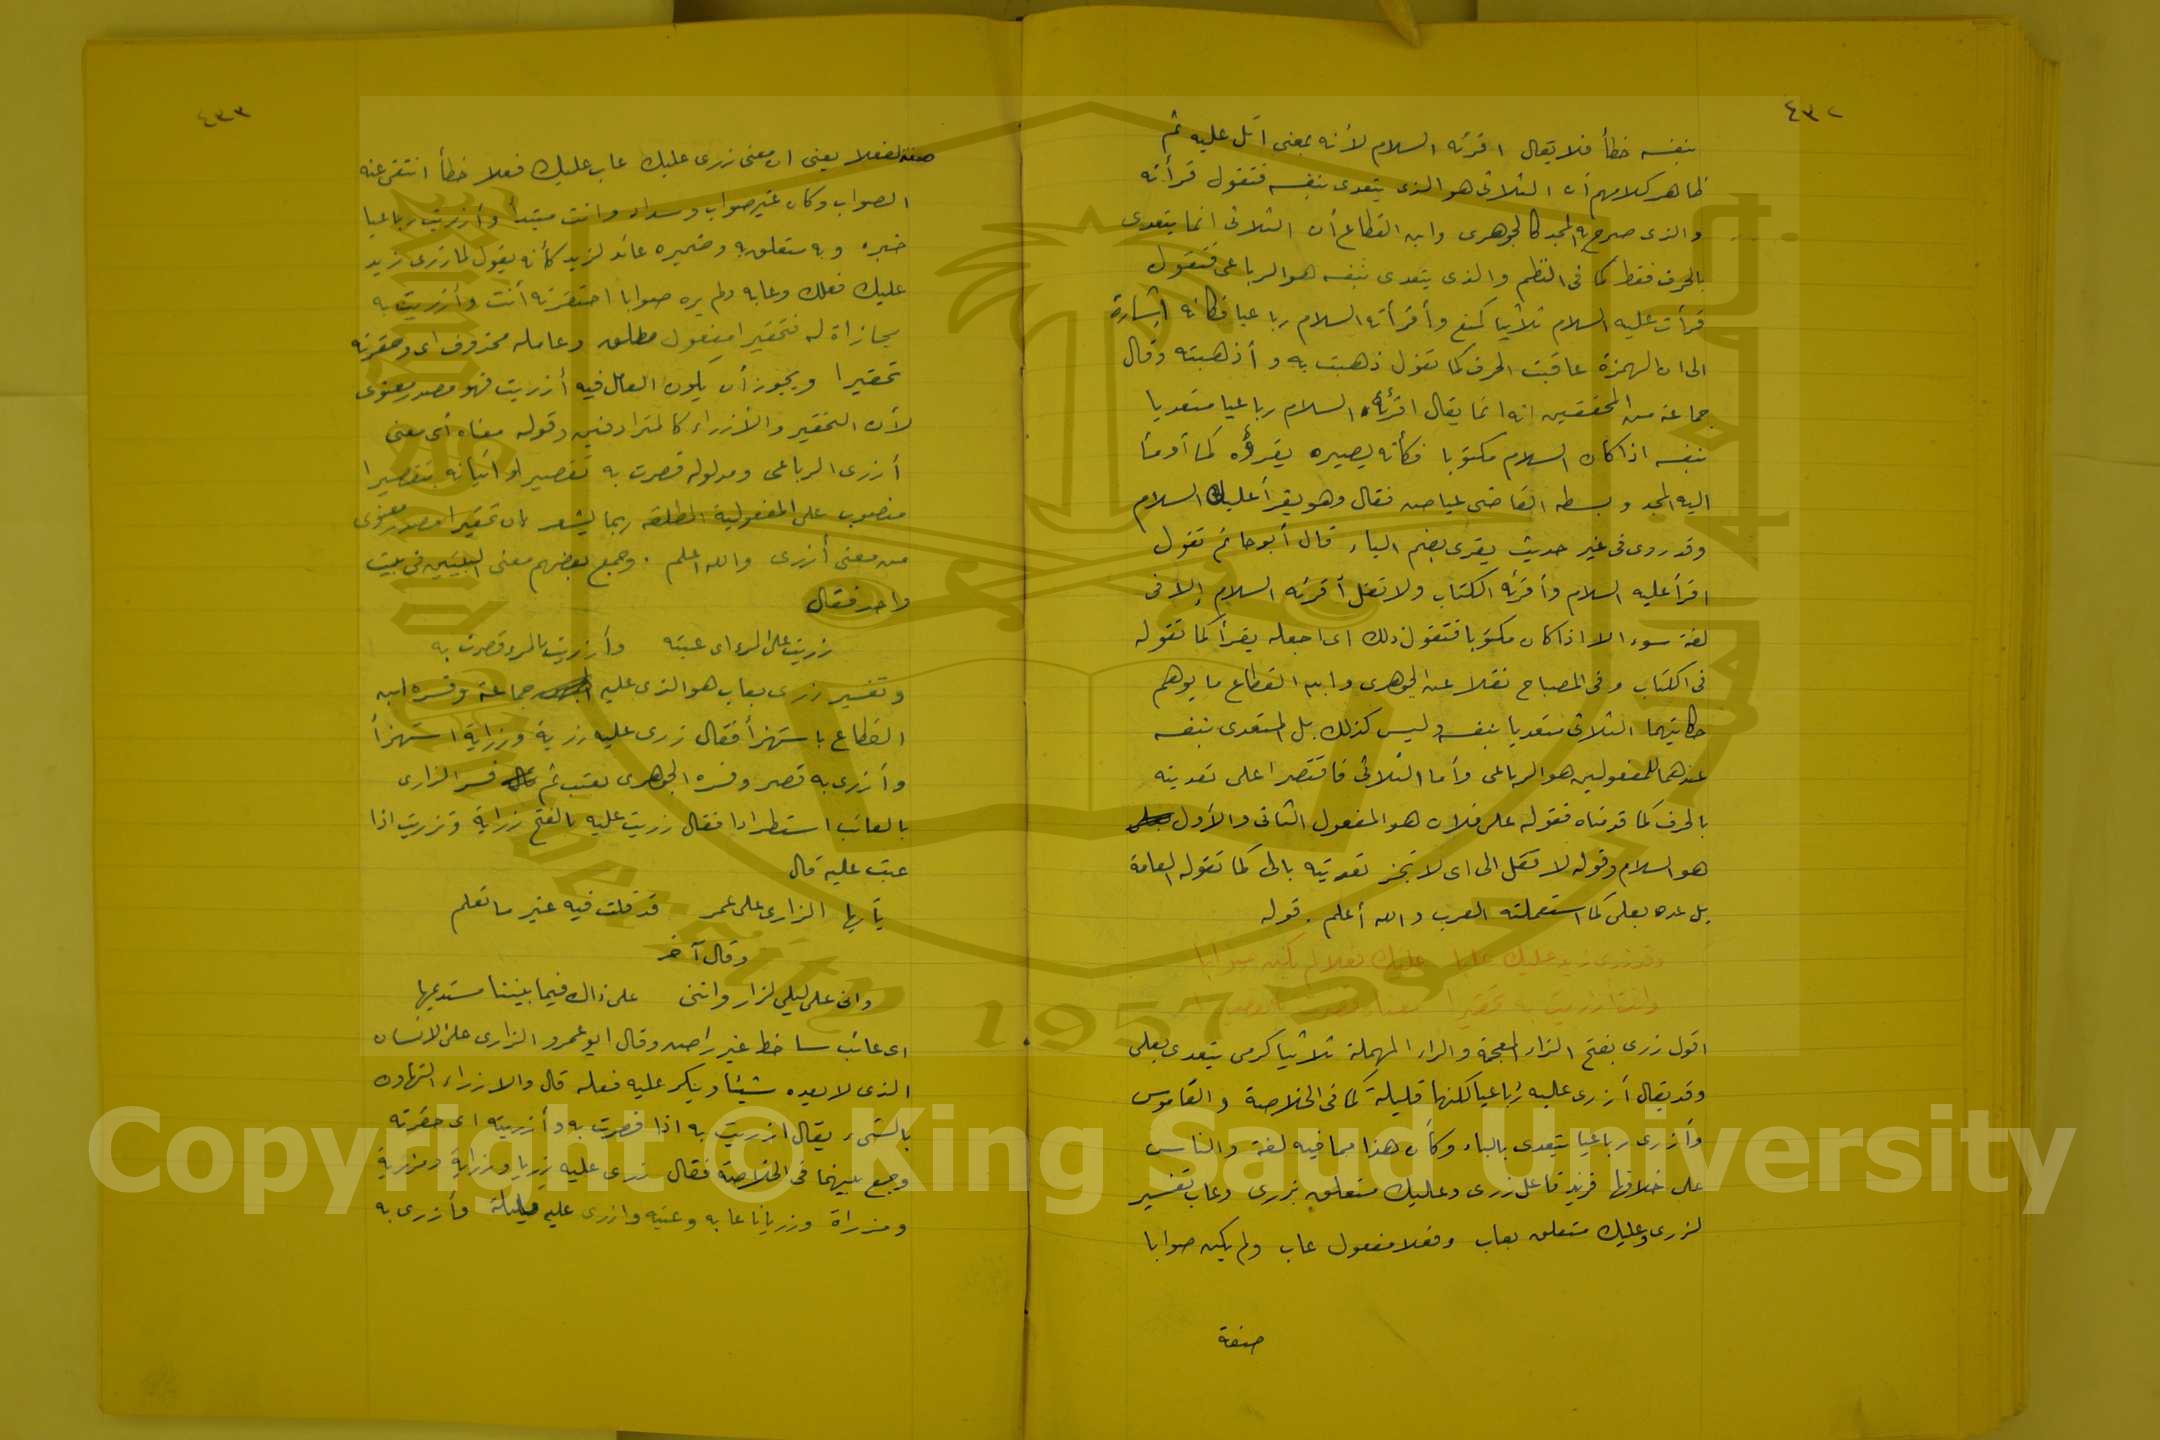 ٤٣٢
بنفسه خطأ فلا يقال اقرئه السلام لأنه بمعنى اتل عليه ثم
ظاهر كلامهم أن الثلاثى هو الذى يتعدى بنفسه فتقول قرأته
والذى صرح به المجد كالجوهرى وابن القطاع أن الثلاثى انما يتعدى
بالحرف فقط كما فى النظم والذى يتعدى بنفسه هو الرباعى فتقول
قرأت عليه السلام ثلاثيا كمنع وأقرأته السلام رباعيا فكانه اشارة
الى ان الهمزة عاقبت الحرف كما تقول ذهبت به و أذهبته وقال
جماعة من المحققين انه انما يقال اقرئه السلام رباعيا متعديا
بنفسه اذا كان السلام مكتوبا فكأنه يصيره يقرؤه كما أومأ
اليه المجد و بسطه القاضى عياض فقال وهو يقرأ عليك السلام
وقد روى فى غير حديث يقرى بضم الياء قال أبو حاتم تقول
اقرأ عليه السلام وأقرئه الكتاب ولا تقل أقرئه السلام إلا فى
لغة سوء الا اذا كان مكتوبا فتقول ذلك اى اجعله يقرأ كما تقوله
فى الكتاب وفى المصباح نقلا عن الجوهرى وابن القطاع ما يوهم
حكايتهما الثلاثى متعديا بنفسه وليس كذلك بل المتعدى بنفسه
عندهما للمفعولين هو الرباعى وأما الثلاثى فاقتصرا على تعديته
بالحرف كما قدمناه فقوله على فلان هو المفعول الثانى والأول
هو السلام وقوله لا تقل الى اى لا تجز تعديته بالى كما تقوله العامة
بل عده بعلى كما استعملته العرب والله أعلم . قوله
وقد زرى زيد عليك عابا عليك فعلا لم يكن صوابا
وانت أزريت به تحقيرا معناه قصرت
اقول زرى بفتح الزاء المعجمة والراء المهملة ثلاثيا كرمى يتعدى بعلى
وقد يقال أزرى عليه رباعيا لكنها قليلة كما فى الخلاصة والقاموس
وأزرى رباعيا يتعدى بالباء وكأن هذا مما فيه لغة والناس
على خلافها فزيد فاعل زرى وعليك متعلق بزرى وعاب تفسير
لزرى وعليك متعلق بعاب وفعلا مفعول عاب ولم يكن صوابا
صفة
٤٣٣
صفة لفعلا يعنى ان معنى زرى عليك عاب عليك فعلا خطأ انتفى عنه
الصواب وكان غير صواب وسداد وانت مبتدأ وأزريت رباعيا
خبره وبه متعلق به وضميره عائد لزيد كأنه يقول لما زرى زيد
عليك فعلك وعابه ولم يره صوابا احتقرته أنت وأزريت به
مجازاة له فتحقيرا مفعول مطلق وعامله محذوف اى وحقرته
تحقيرا ويجوز أن يكون العامل فيه أزريت فهو مصدر معنوى
لأن التحقير والأزراء كالمترادفين وقوله معناه أى معنى
أزرى الرباعى ومدلوله قصرت به تقصيرا واتيانه بتقصيرا
منصوب على المفعولية المطلقه ربما يشعر بان تحقيرا مصدر معنوى
من معنى أزرى والله اعلم . وجمع بعضهم معنى البيتين فى بيت
واحد فقال
زريت على المرء اى عبته وأزريت بالمرء قصرت به
وتفسير زرى بعاب هو الذى عليه جماعة وفسره ابن
القطاع باستهزأ فقال زرى عليه زرية وزراية استهزأ
وأزرى به قصر وفسره الجوهرى بعتب ثم فسر الزارى
بالعاتب استطرادا فقال زريت عليه بالفتح زراية وتزريت اذا
عتبت عليه قال
يأيها الزارى على عمر قد قلت فيه غير ما تعلم
وقال آخر
وانى على ليلى لزار واننى على ذاك فيما بيننا مستديمها
اى عاتب ساخط غير راض وقال ابو عمرو الزارى على الانسان
الذى لا يعده شيئا وينكر عليه فعله قال والازراء التهاون
بالشىء يقال ازريت به اذا قصرت به وأزريته اى حقرته
وجمع بينهما فى الخلاصة فقال زرى عليه زريا وزراية ومزرية
ومزراة وزريانا عابه وعتبه وازرى عليه قليلة وأزرى به
Copyright © King Saud University
King Saud University
1957